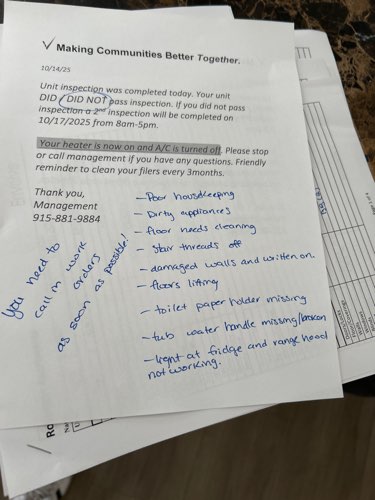 ✓ Making Communities Better Together.
10/14/25
Unit inspection was completed today. Your unit
DID / DID NOT pass inspection. If you did not pass
inspection a 2nd inspection will be completed on
10/17/2025 from 8am-5pm.
Your heater is now on and A/C is turned off. Please stop
or call management if you have any questions. Friendly
reminder to clean your filers every 3months.
Thank you,
Management
915-881-9884
You need to
call in work
orders
as soon as possible!
- Poor housekeeping
- Dirty appliances
- floor needs cleaning
- Stair threads off
- damaged walls and written on.
- floors lifting
- toilet paper holder missing
- tub water handle missing/broken
- light at fridge and range hood
not working.